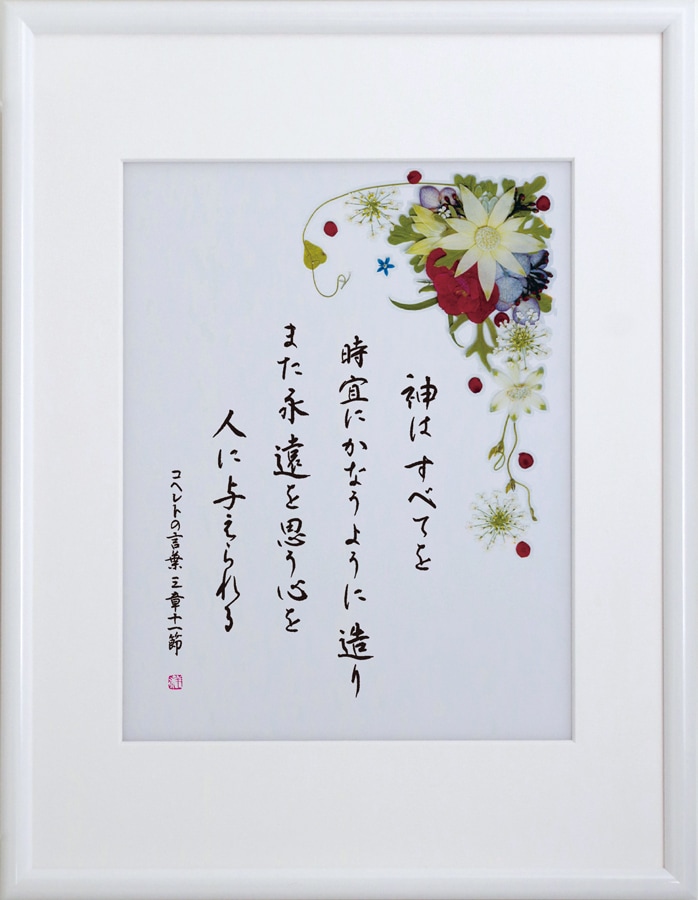 神は すべてを
時宜にかなうように 造り
また永遠を思う心を
人に与えられる
コヘレトの言葉 三章十一節